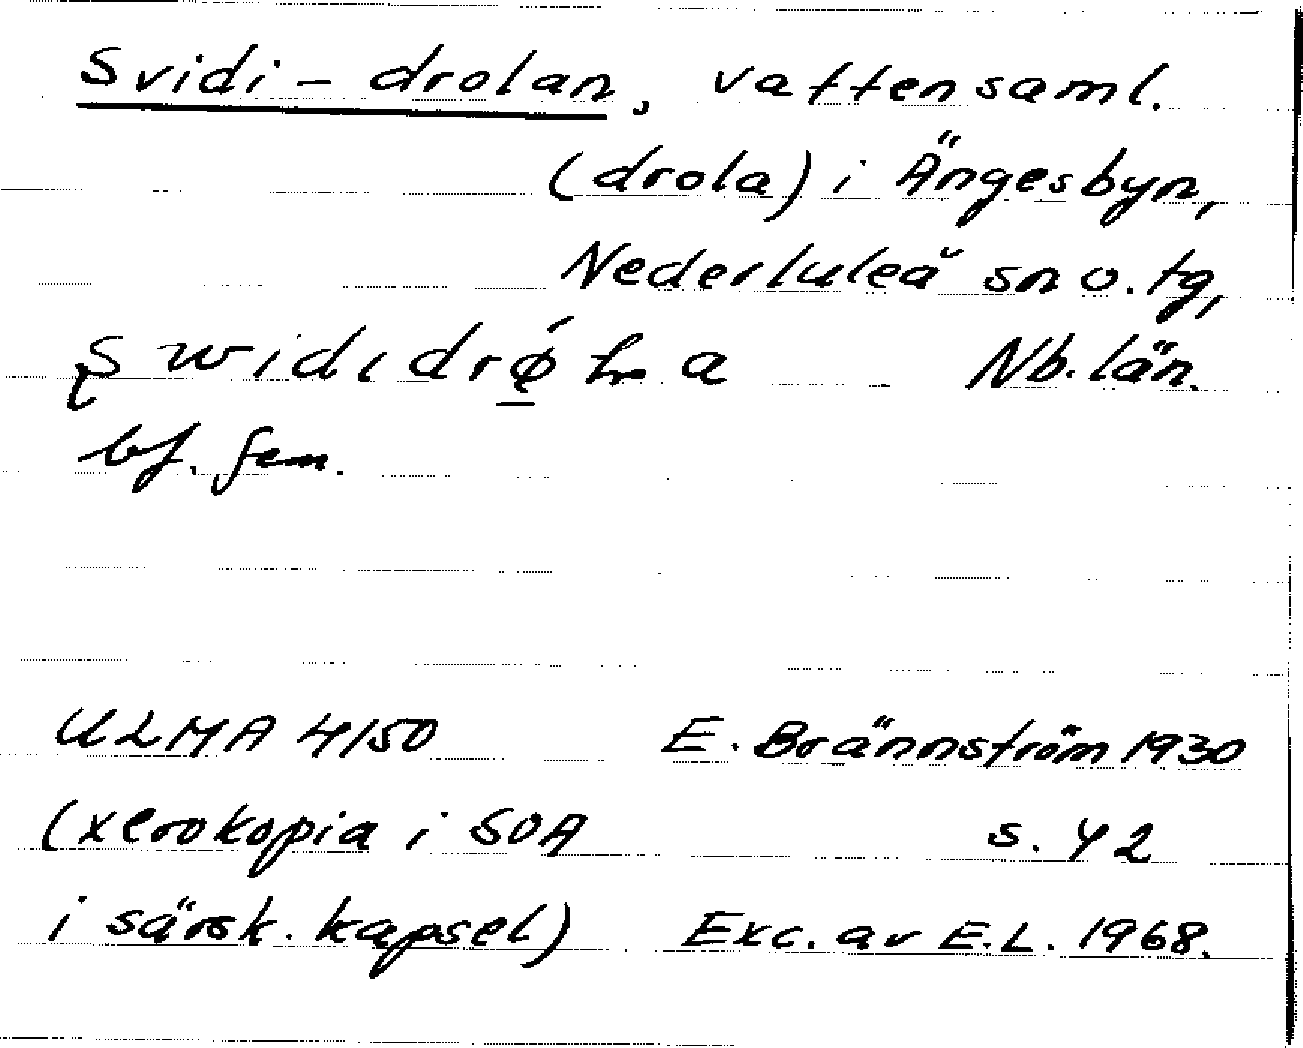 Svidi-drolan, vattensaml.
(drola) i Ängesbyn,
Nederluleå sn o. tg,
Nb. län.
bf. fem.
ULMA 4150 E. Brännström 1930
(xerokopia i SOA s. 42
i särsk. kapsel) Exc. av E.L. 1968.